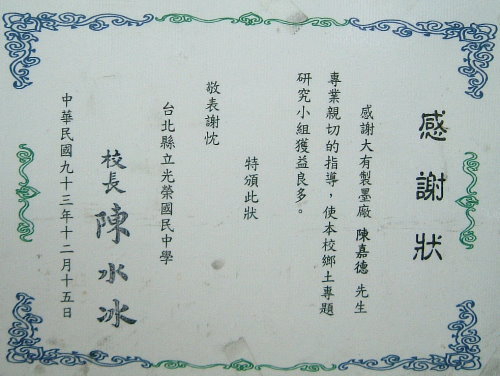 感謝狀
感謝大有製墨廠 陳嘉德 先生
專業親切的指導，使本校鄉土專題
研究小組獲益良多。
特頒此狀
敬表謝忱
台北縣立光榮國民中學
校長 陳水冰
中華民國九十三年十二月十五日